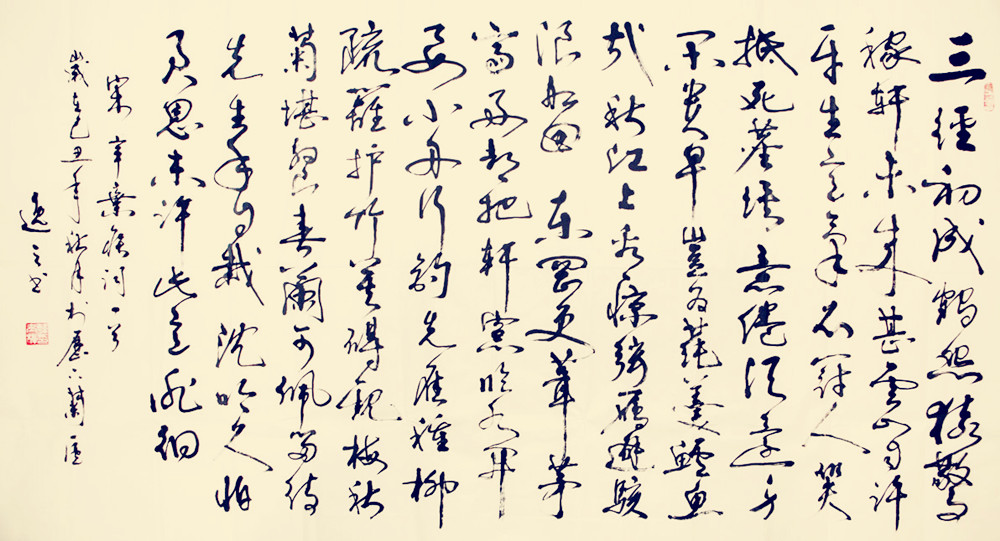 三徑初成鶴怨猿驚
稼軒未來甚雲山自許
平生意氣衣冠人笑
抵死塵埃意倦須還身
閑貴早豈為蒓羹鱸魚
哉秋江上看驚弦雁避駭
浪船回 東岡更葺茅
齋好都把軒窗臨水開
要小舟行釣先應種柳
疏籬護竹莫礙觀梅秋
菊堪餐春蘭可佩留待
先生手自栽 沈吟久怕
君恩未許此意徘徊
宋辛棄疾詞一首
歲在己丑年秋月於歷下蘭
逸之書